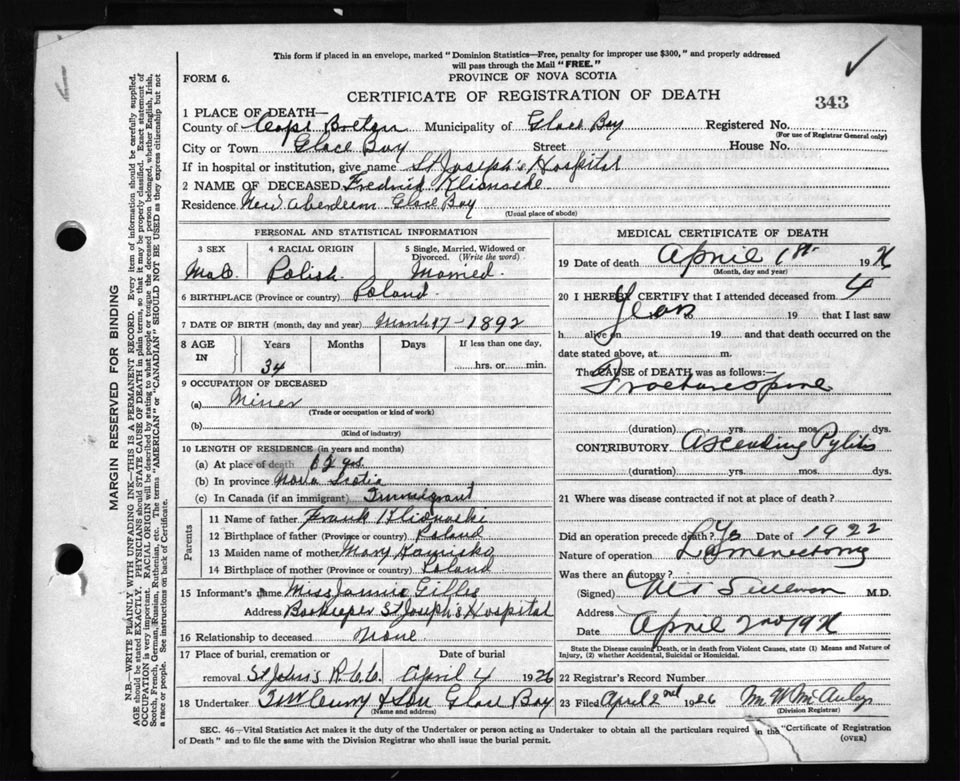 This form if placed in an envelope, marked "Dominion Statistics—Free, penalty for improper use $300," and properly addressed
will pass through the Mail "FREE."
FORM 6.
PROVINCE OF NOVA SCOTIA
CERTIFICATE OF REGISTRATION OF DEATH
343
1 PLACE OF DEATH—
County of Cape Breton Municipality of Glace Bay Registered No.
(For use of Registrar General only)
City or Town Glace Bay Street House No.
If in hospital or institution, give name St Joseph's Hospital
2 NAME OF DECEASED Fredrick Klionoske
Residence New Aberdeen Glace Bay
(Usual place of abode)
PERSONAL AND STATISTICAL INFORMATION
3 SEX 4 RACIAL ORIGIN 5 Single, Married, Widowed or
Divorced. (Write the word)
Male Polish Married.
6 BIRTHPLACE (Province or country) Poland
7 DATE OF BIRTH (month, day and year) March 17-1892
8 AGE IN Years Months Days If less than one day,
34 hrs. or min.
9 OCCUPATION OF DECEASED
(a) Miner
(Trade or occupation or kind of work)
(b)
(Kind of industry)
10 LENGTH OF RESIDENCE (in years and months)
(a) At place of death yrs.
(b) In province Nova Scotia
(c) In Canada (if an immigrant) Immigrant
Parents
11 Name of father Frank Klionoski
12 Birthplace of father (Province or country) Poland
13 Maiden name of mother Mary
14 Birthplace of mother (Province or country) Poland
15 Informant's name Miss Jamie Gillis
Address Bookeeper St Joseph's Hospital
16 Relationship to deceased None
17 Place of burial, cremation or Date of burial
removal St John's R.C.C. April 4 1926
18 Undertaker & Son Glace Bay
(Name and address)
MEDICAL CERTIFICATE OF DEATH
19 Date of death April 1st 1926
(Month, day and year)
20 I HEREBY CERTIFY that I attended deceased from 4
Years 19 to 19 that I last saw
h alive on 19 and that death occurred on the
date stated above, at m.
The CAUSE of DEATH was as follows:
Fracture spine
(duration) yrs. mos. dys.
CONTRIBUTORY Ascending Pylitis
(duration) yrs. mos. dys.
21 Where was disease contracted if not at place of death?
Did an operation precede death? Yes Date of 1922
Nature of operation Lamenectomy
Was there an autopsy?
(Signed) Sullivan M.D.
Address
Date April 2nd 1926
State the Disease causing Death, or in death from Violent Causes, state (1) Means and Nature of
Injury, (2) whether Accidental, Suicidal or Homicidal.
22 Registrar's Record Number
23 Filed April 2nd 1926 M W McAulay
(Division Registrar)
SEC. 46—Vital Statistics Act makes it the duty of the Undertaker or person acting as Undertaker to obtain all the particulars required in the "Certificate of Registration
of Death" and to file the same with the Division Registrar who shall issue the burial permit.
(OVER)
MARGIN RESERVED FOR BINDING
N.B.—WRITE PLAINLY WITH UNFADING INK—THIS IS A PERMANENT RECORD. Every item of information should be carefully supplied.
AGE should be stated EXACTLY. PHYSICIANS should STATE CAUSE OF DEATH in plain terms, so that it may be properly classified. Exact statement of
OCCUPATION is very important. RACIAL ORIGIN will be described by stating to what people or tongue the deceased person belonged, whether English, Irish,
Scotch, French, German, Russian, Ruthenian, etc. The terms "AMERICAN" or "CANADIAN" SHOULD NOT BE USED as they express citizenship but not
a race or people. See instructions on back of Certificate.